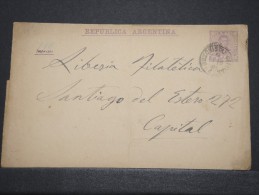 REPUBLICA ARGENTINA
Libería Filatélica
Santiago del Estero 272
Capital